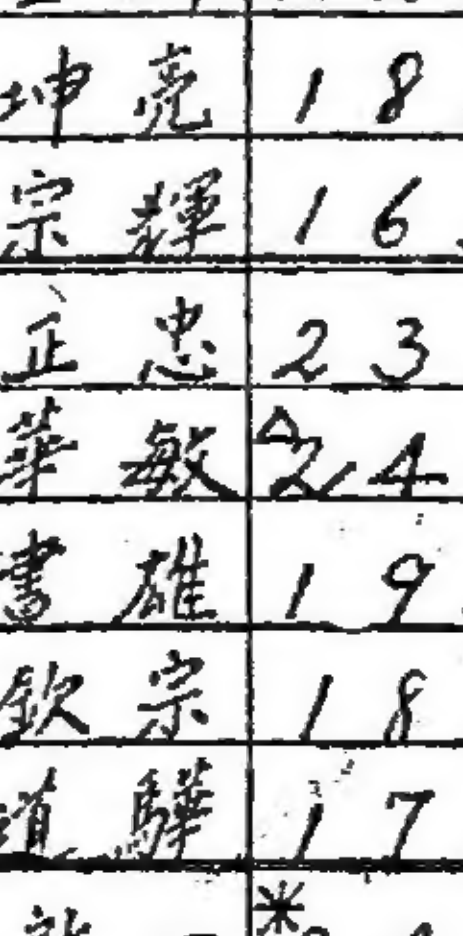 坤亮 18
宗輝 16
正忠 23
華敏 △24
書雄 19
欽宗 18
道驊 17